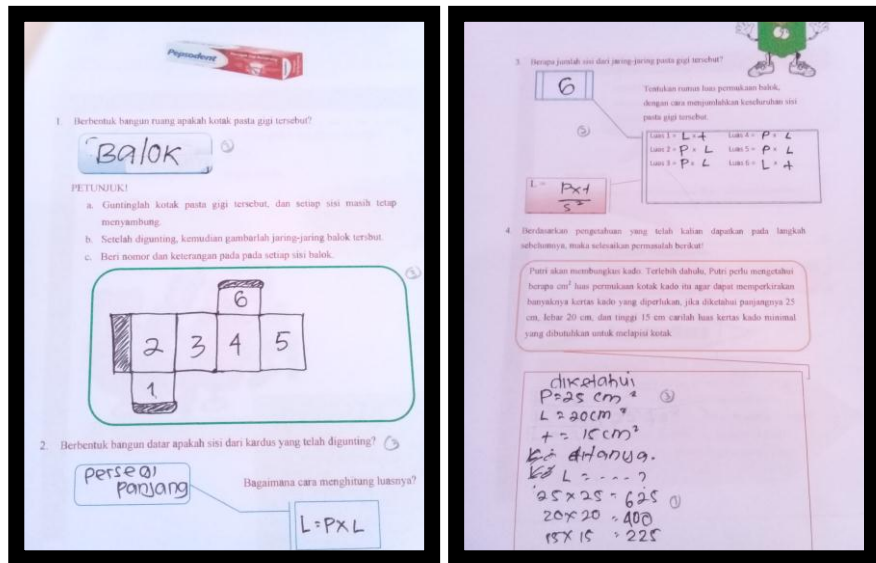 Pepsodent
1. Berbentuk bangun ruang apakah kotak pasta gigi tersebut?
Balok
PETUNJUK!
a. Guntinglah kotak pasta gigi tersebut, dan setiap sisi masih tetap
menyambung.
b. Setelah digunting, kemudian gambarlah jaring-jaring balok tersbut.
c. Beri nomor dan keterangan pada pada setiap sisi balok.
6
2 3 4 5
1
2. Berbentuk bangun datar apakah sisi dari kardus yang telah digunting?
Persegi
panjang
Bagaimana cara menghitung luasnya?
L = P x L
3. Berapa jumlah sisi dari jaring-jaring pasta gigi tersebut?
6
Tentukan rumus luas permukaan balok,
dengan cara menjumlahkan keseluruhan sisi
pasta gigi tersebut.
Luas 1 = L x t Luas 4 = P x L
Luas 2 = P x L Luas 5 = P x L
Luas 3 = P x L Luas 6 = L x t
L = P x t
s²
4. Berdasarkan pengetahuan yang telah kalian dapatkan pada langkah
sebelumnya, maka selesaikan permasalah berikut!
Putri akan membungkus kado. Terlebih dahulu, Putri perlu mengetahui
berapa cm² luas permukaan kotak kado itu agar dapat memperkirakan
banyaknya kertas kado yang diperlukan, jika diketahui panjangnya 25
cm, lebar 20 cm, dan tinggi 15 cm carilah luas kertas kado minimal
yang dibutuhkan untuk melapisi kotak.
diketahui
P=25 cm²
L = 20cm²
t = 15cm²
ditanya.
L = - - - ?
25 x 25 = 625
20 x 20 = 400
15 x 15 = 225